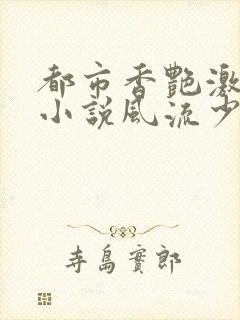 都市香艷激
小説風流少
寺島實郎